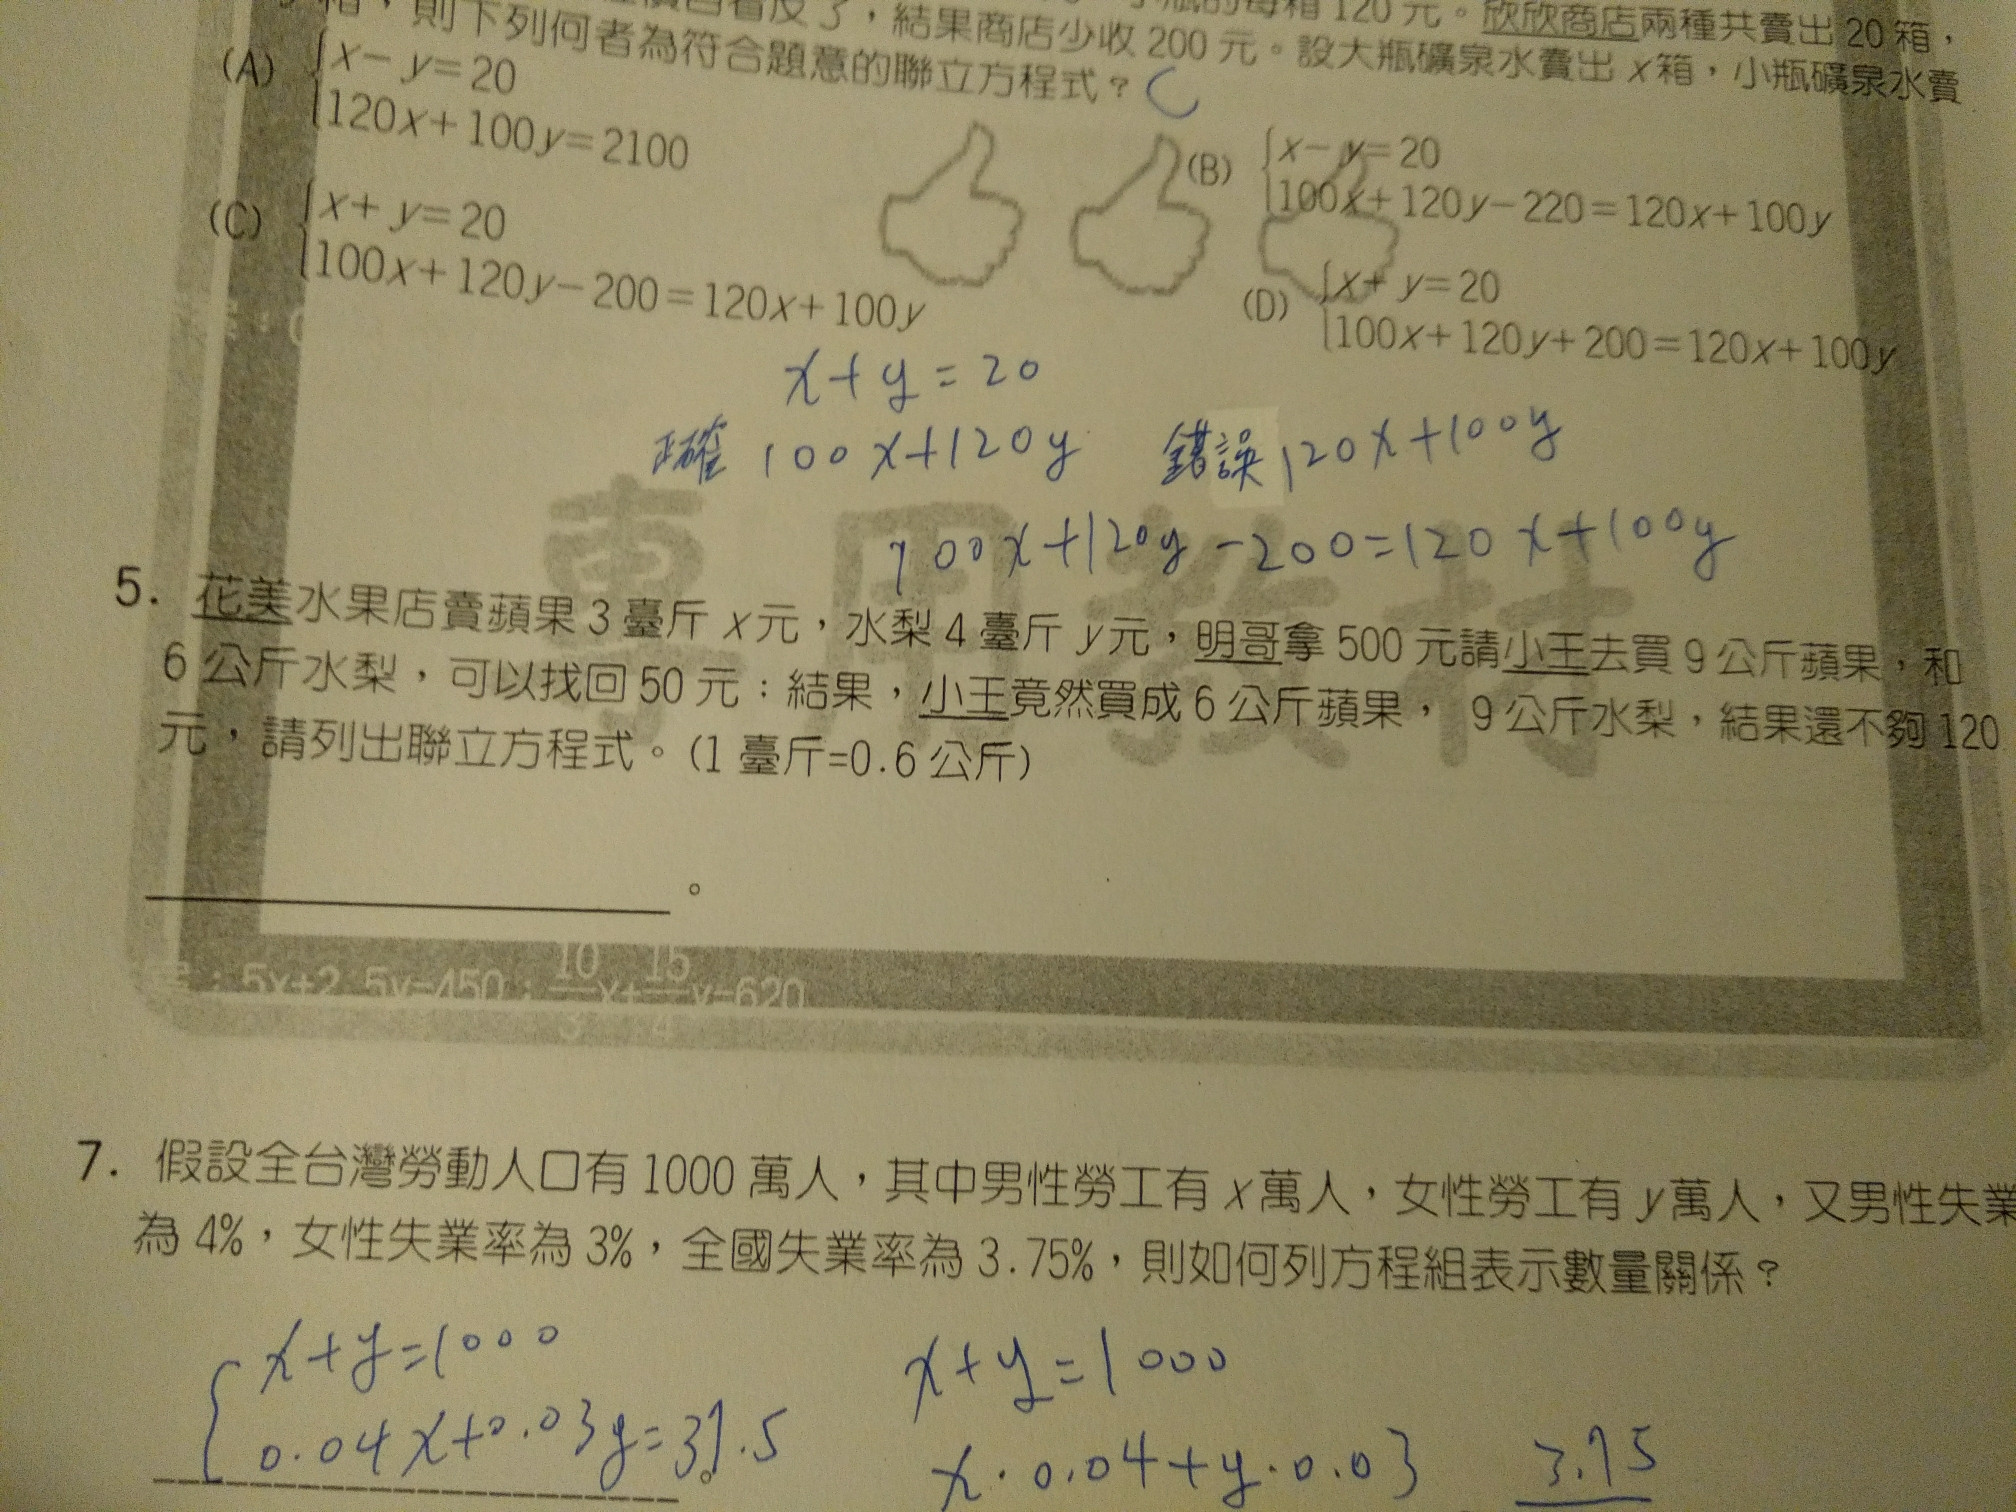 120元。欣欣商店兩種共賣出20箱，
反了，結果商店少收200元。設大瓶礦泉水賣出x箱，小瓶礦泉水賣
箱，則下列何者為符合題意的聯立方程式？C
(A) {x−y=20
120x+100y=2100
(B) {x−y=20
100x+120y−220=120x+100y
(C) {x+y=20
100x+120y−200=120x+100y
(D) {x+y=20
100x+120y+200=120x+100y
x+y=20
正確 100x+120y 錯誤 120x+100y
100x+120y-200=120x+100y
專用教材
5. 花美水果店賣蘋果3臺斤x元，水梨4臺斤y元，明哥拿500元請小王去買9公斤蘋果，和
6公斤水梨，可以找回50元：結果，小王竟然買成6公斤蘋果， 9公斤水梨，結果還不夠120
元，請列出聯立方程式。(1臺斤=0.6公斤)
。
：5x+2.5y=450；10/3x+15/4y=620
7. 假設全台灣勞動人口有1000萬人，其中男性勞工有x萬人，女性勞工有y萬人，又男性失業
為4%，女性失業率為3%，全國失業率為3.75%，則如何列方程組表示數量關係？
{x+y=1000
0.04x+0.03y=37.5
。
x+y=1000
x·0.04+y·0.03 3.75